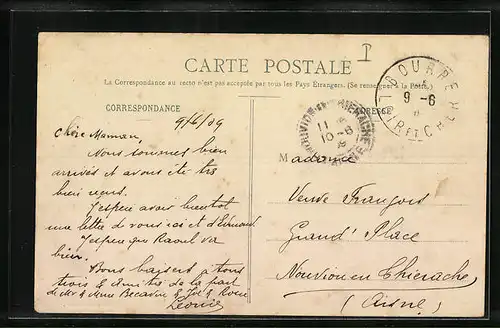 CARTE POSTALE
La Correspondance au recto n'est pas acceptée par tous les Pays Étrangers. (Se renseigner à la Poste.)
CORRESPONDANCE
ADRESSE
9/6/09
Chère Maman,
Nous sommes bien
arrivés et avons été très
bien reçus.
J'espère avoir bientôt
une lettre de vous ici et d'Edmond.
J'espère que Raoul va
bien.
Bons baisers à tous
trois & amitiés de la part
de Mr & Mme &
Léonie
Madame
Veuve François
Grand' Place
Nouvion en Thiérache
(Aisne)
9-6
LOIR ET CHER
11
10-6